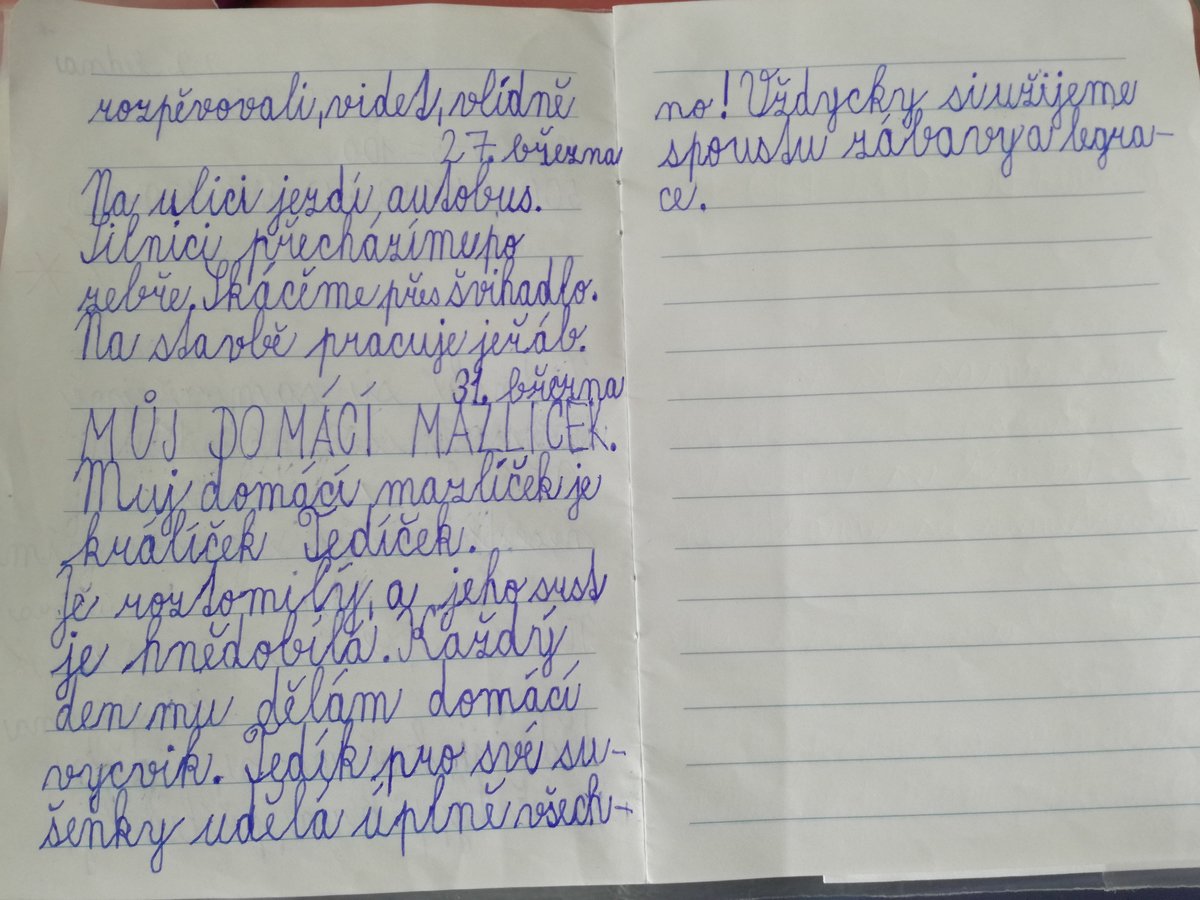 rozpěvovali, videt, vlídně
27. března
Na ulici jezdí autobus.
Silnici přecházíme po
zebře. Skáčeme přes švihadlo.
Na stavbě pracuje jeřáb.
31. března
MŮJ DOMÁCÍ MAZLÍČEK.
Muj domácí mazlíček je
králíček Tedíček.
Je roztomilý, a jeho srst
je hnědobílá. Každý
den mu dělám domácí
vycvik. Tedík pro své su-
šenky udělá úplně všech-
no! Vždycky si užijeme
spoustu zábavy a legra-
ce.